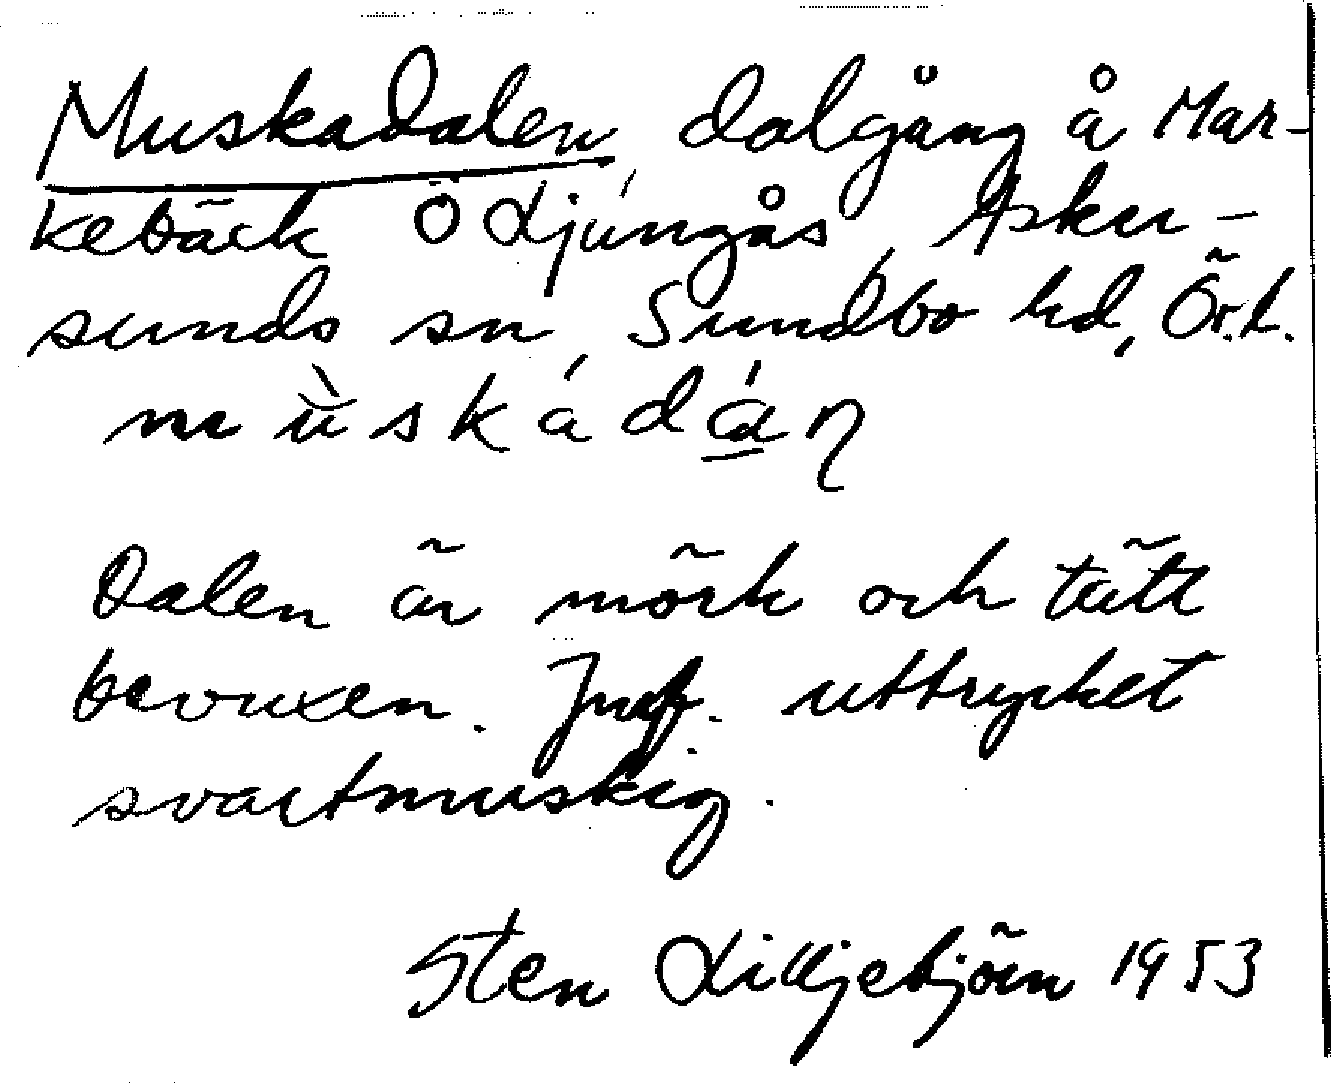 Muskadalen, dalgång å Mar-
kebäck Ö Ljungås, Asker-
sunds sn, Sundbo hd, Ör.l.
mùskádán
Dalen är mörk och tätt
bevuxen. Jmf. uttrycket
svartmuskig.
Sten Lilljebjörn 1953